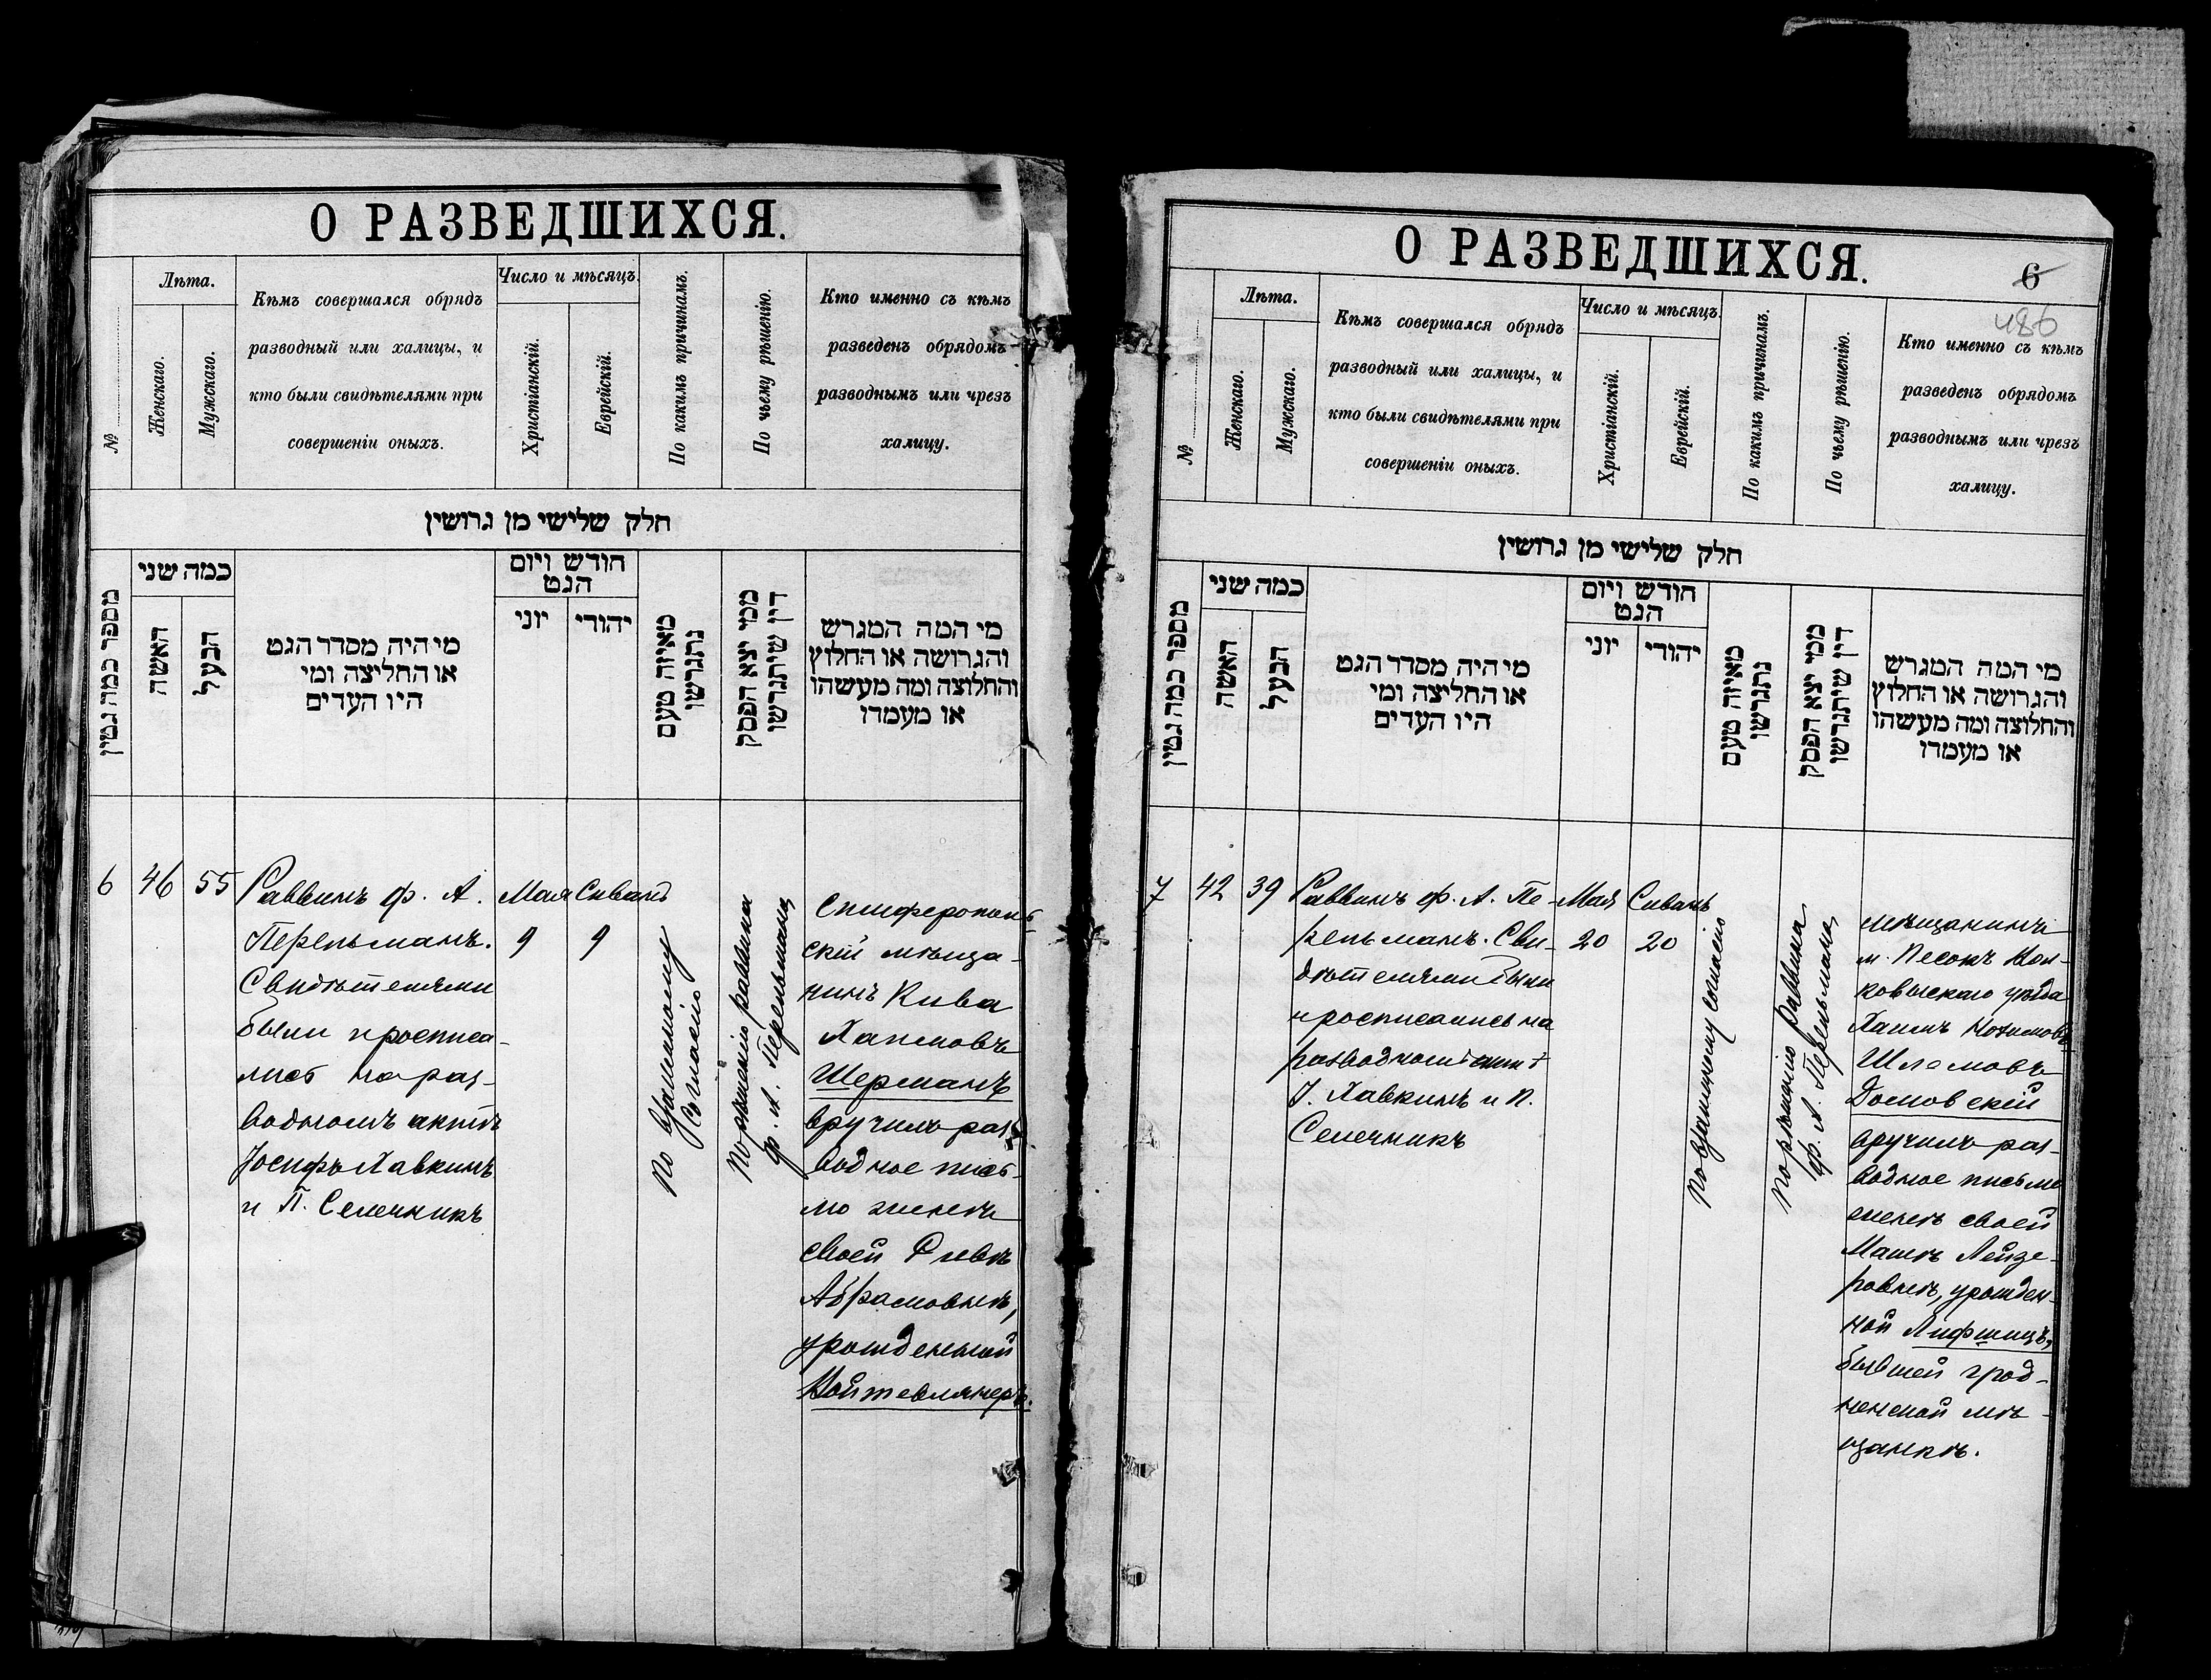 О РАЗВЕДШИХСЯ.
№
Лѣта.
Женскаго.
Мужскаго.
Кѣмъ совершался обрядъ
разводный или халицы, и
кто были свидѣтелями при
совершеніи оныхъ.
Число и мѣсяцъ.
Христіанскій.
Еврейскій.
По какимъ причинамъ.
По чьему рѣшенію.
Кто именно съ кѣмъ
разведенъ обрядомъ
разводнымъ или чрезъ
халицу.
חלק שלישי מן גרושין
מספר כמה גטין
כמה שני
האשה
הבעל
מי היה מסדר הגט
או החליצה ומי
היו העדים
חודש ויום
הגט
יוני
יהודי
מאיזה טעם
נתגרשו
ממי יצא הפסק
דין שיתגרשו
מי המה המגרש
והגרושה או החלוץ
והחלוצה ומה מעשהו
או מעמדו
6
46
55
Раввинъ Ф. А.
Перельманъ.
Свидѣтелями
были и росписа-
лись на раз-
водномъ актѣ
Іосифъ Хавкинъ
и П. Селечникъ
Мая
9
Сиванъ
9
По взаимному
согласію
По рѣшенію раввина
Ф. А. Перельмана
Симферополь-
скій мѣща-
нинъ Кива
Хаимовъ
Шерманъ
вручилъ раз-
водное пись-
мо женѣ
своей Ривкѣ
Абрамовнѣ,
урожденной
Войтевлянеръ.
О РАЗВЕДШИХСЯ.
6
486
№
Лѣта.
Женскаго.
Мужскаго.
Кѣмъ совершался обрядъ
разводный или халицы, и
кто были свидѣтелями при
совершеніи оныхъ.
Число и мѣсяцъ.
Христіанскій.
Еврейскій.
По какимъ причинамъ.
По чьему рѣшенію.
Кто именно съ кѣмъ
разведенъ обрядомъ
разводнымъ или чрезъ
халицу.
חלק שלישי מן גרושין
מספר כמה גטין
כמה שני
האשה
הבעל
מי היה מסדר הגט
או החליצה ומי
היו העדים
חודש ויום
הגט
יוני
יהודי
מאיזה טעם
נתגרשו
ממי יצא הפסק
דין שיתגרשו
מי המה המגרש
והגרושה או החלוץ
והחלוצה ומה מעשהו
או מעמדו
7
42
39
Раввинъ Ф. А. Пе-
рельманъ. Сви-
дѣтелями были
и росписались на
разводномъ актѣ
І. Хавкинъ и П.
Селечникъ
Мая
20
Сиванъ
20
По взаимному согласію
По рѣшенію раввина
Ф. А. Перельмана
мѣщанинъ
м. Песокъ Вол-
ковыскаго уѣзда
Хаимъ Нохимовъ-
Шлемовъ
Домовскій
вручилъ раз-
водное письмо
женѣ своей
Машѣ Лейзе-
ровнѣ, урожден-
ной Лифшицъ,
бывшей грод-
ненской мѣ-
щанкѣ.